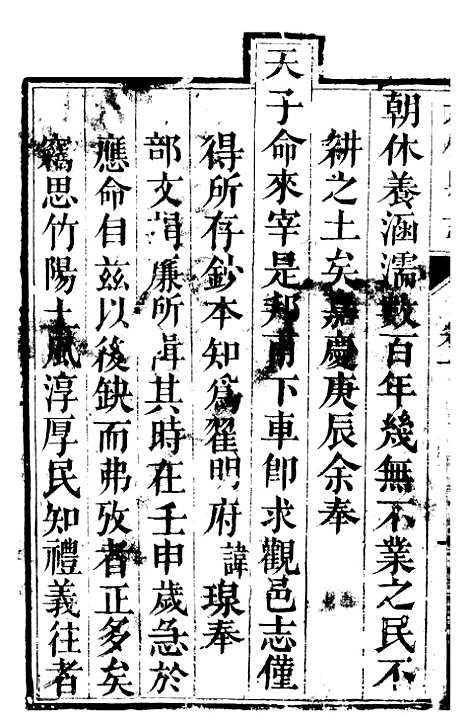 朝休養涵濡數百年幾無不業之民不
耕之土矣嘉慶庚辰余奉
天子命來宰是邦甫下車卽求觀邑志僅
得所存鈔本知爲翟明府諱㻞奉
部文捐廉所葺其時在壬申歲急於
應命自茲以後缺而弗攷者正多矣
竊思竹陽士風淳厚民知禮義往者